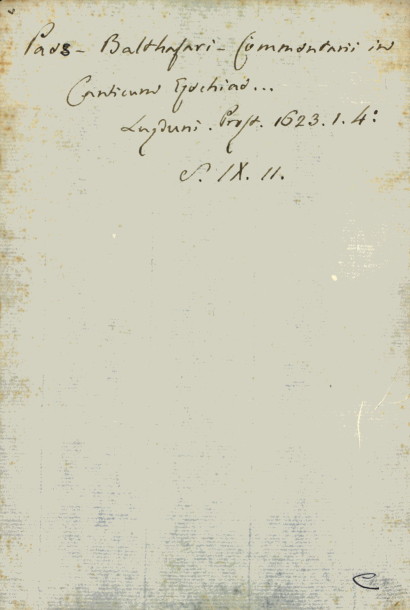 Paes - Balthasari - Commentarii in
Canticum Ezechiae...
Lugduni. Prost. 1623. 1. 4:
S. IX. 11.